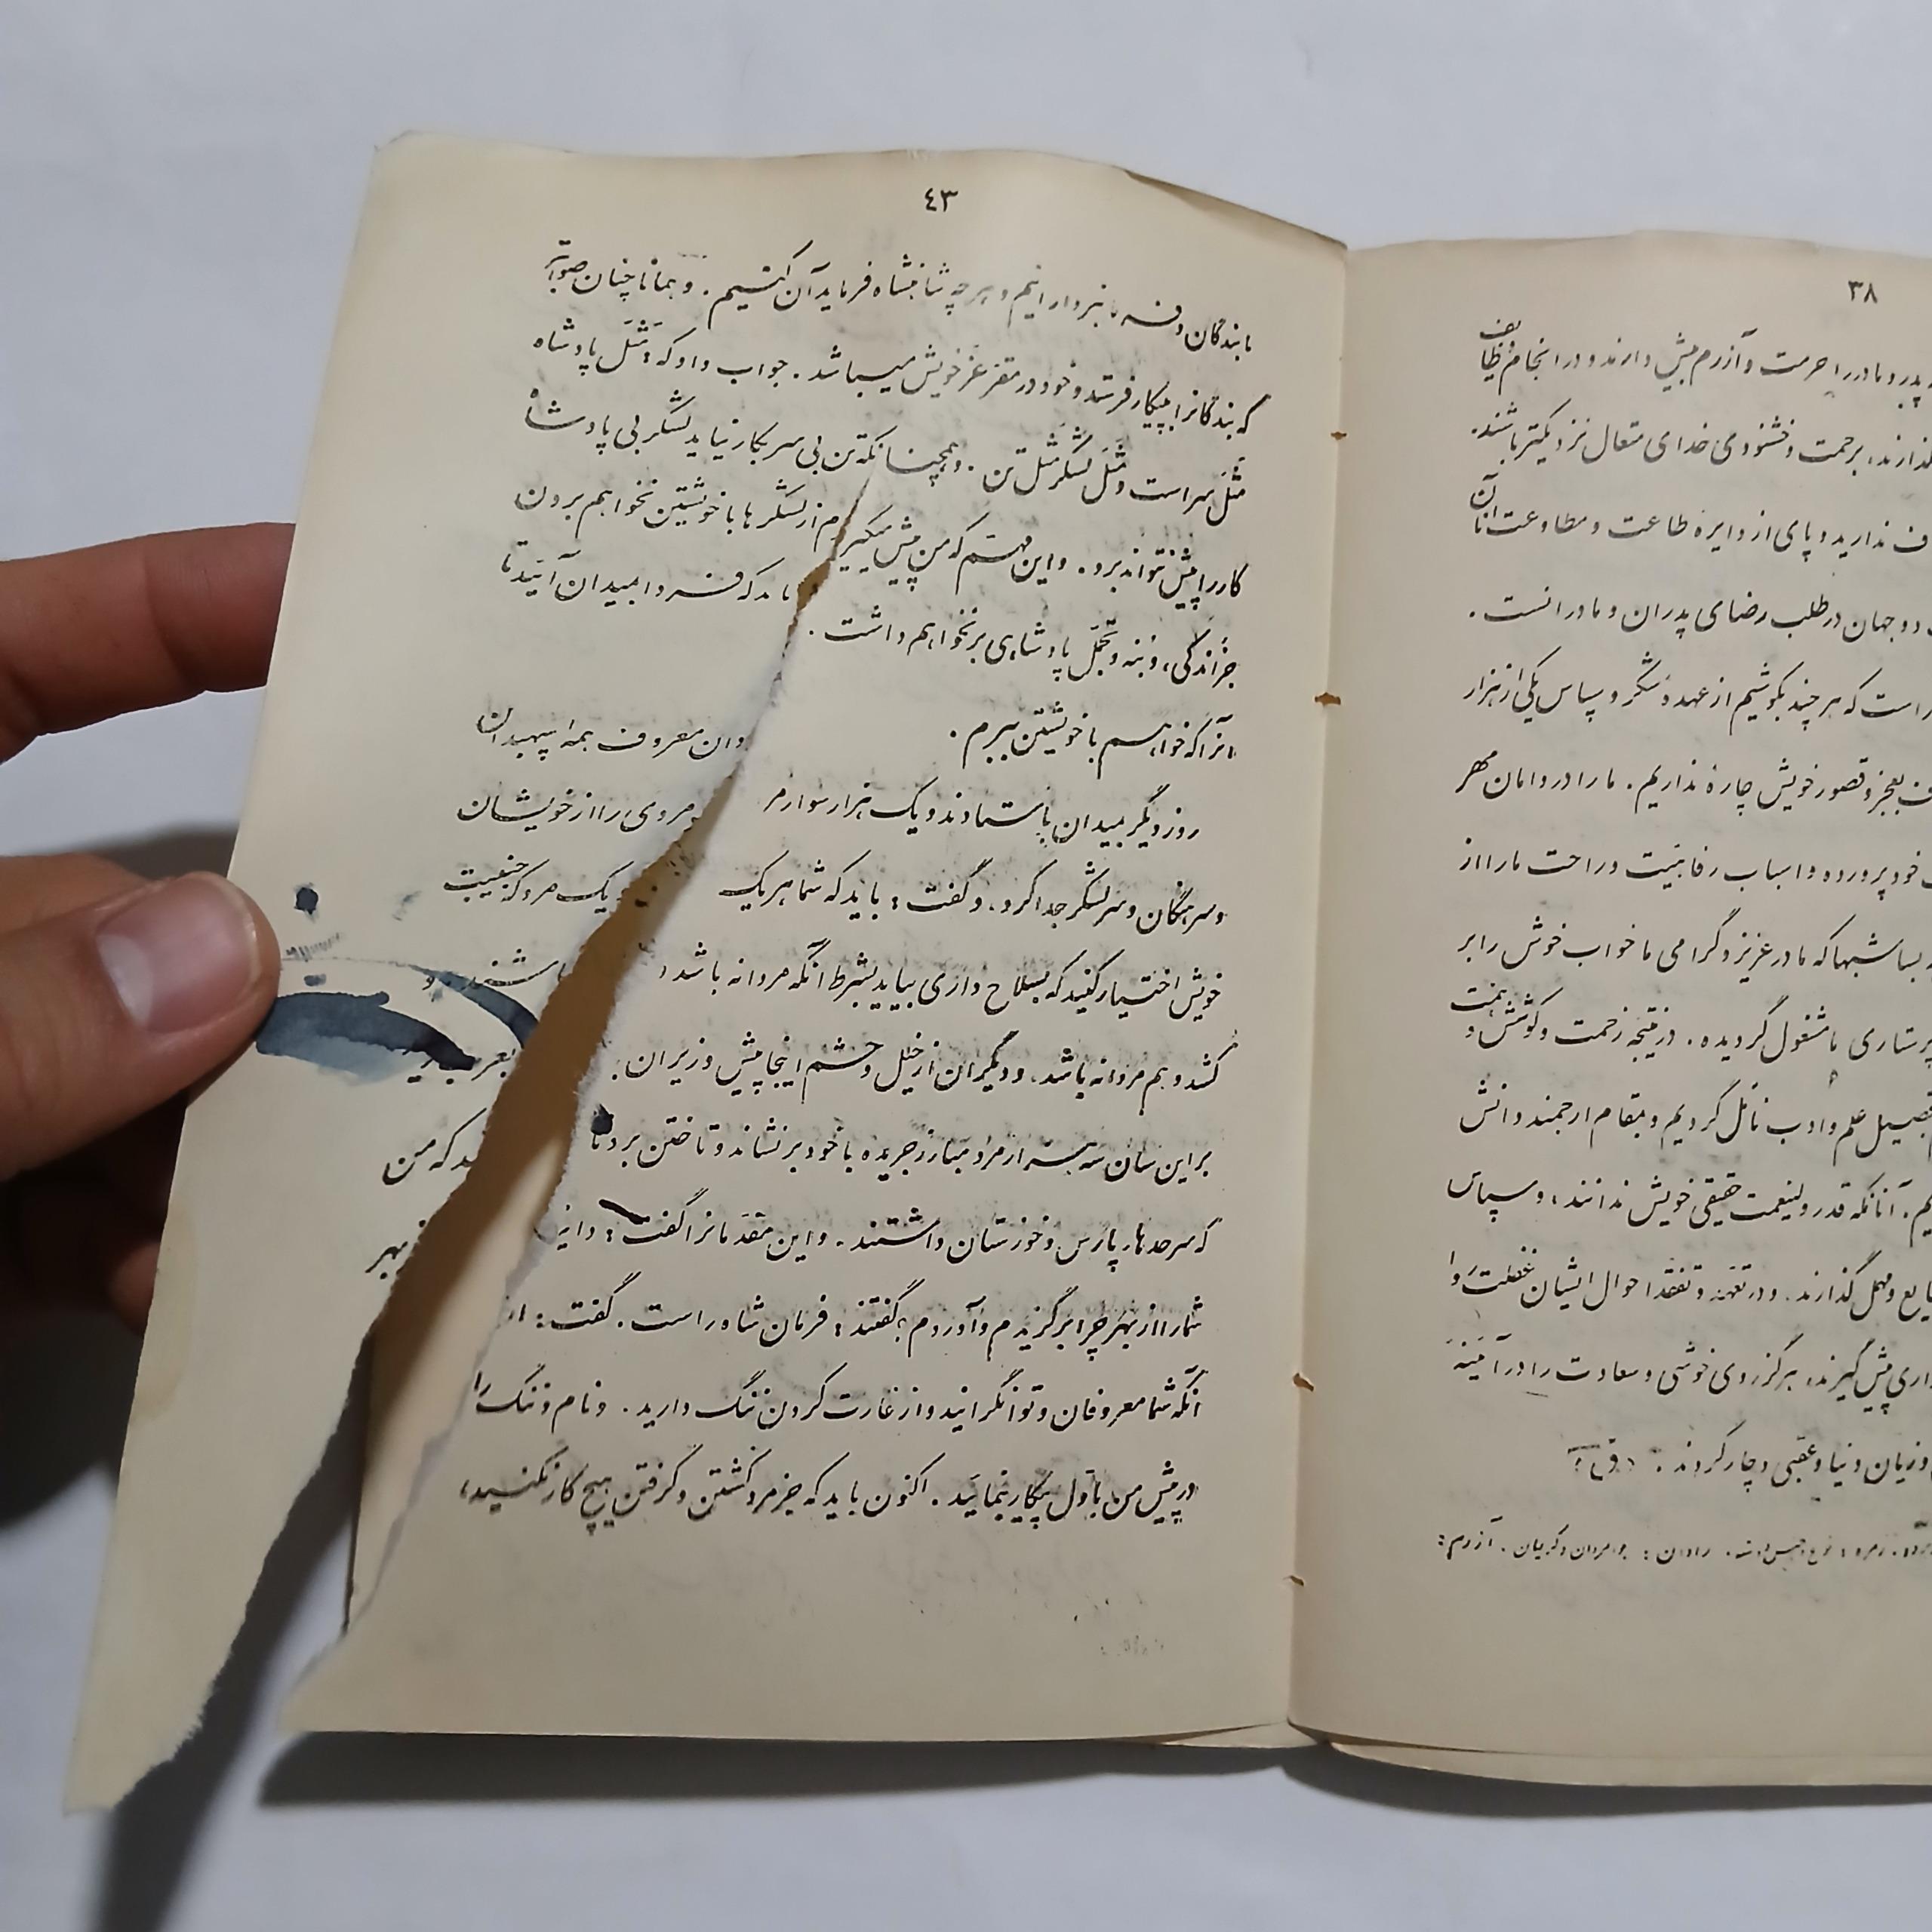 ٤٣
ما بندگان و فرمانبردارانیم و هرچه شاهنشاه فرماید آن کنیم . و همانا چنان صوابتر
که بندگانرا بپیکار فرستد و خود در مقر عز خویش میباشد . جواب داد که : مَثَل پادشاه
مَثَل سر است و مَثَل لشکر مَثَل تن . و همچنانکه تن بی سر بکار نیاید لشکر بی پادشاه
کار را پیش نتواند برد . و این مهم که من پیش میگیرم از لشکرها با خویشتن نخواهم برون
جز اندکی ، و بنه و تجمل پادشاهی بر نخواهم داشت . باید که فردا بمیدان آئید تا
آنرا که خواهم با خویشتن ببرم .
روز دیگر بمیدان باستادند و یک هزار سوار مر وان معروف همه اسپهبدان
و سرهنگان و سر لشکر جدا کرد . و گفت : باید که شما هر یک مردی را از خویشان
خویش اختیار کنید که بسلاح داری بیاید بشرط آنکه مردانه باشد و یک مرد که جنیبت
کشد و هم مردانه باشد . و دیگران از خیل و حشم اینجا پیش وزیران باشند و
بر این سان سه هزار مرد مبارز جریده با خود بر نشاند و تاختن برد تا
که سرحدها پارس و خوزستان داشتند . و این مقدمانرا گفت : دانید که من
شما را از بهر چرا برگزیدم و آوردم ؟ گفتند : فرمان شاه راست . گفت : از بهر
آنکه شما معروفان و توانگرانید و از غارت کردن ننگ دارید . و نام و ننگ را
در پیش من باول پیکار بنمائید . اکنون باید که جز مرد کشتن و گرفتن هیچ کار نکنید ،
٣٨
پدر و مادر را حرمت و آزرم بیش دارند و در انجام وظایف
برحمت و خشنودی خدای متعال نزدیکتر باشند .
ندارید و پای از دایره طاعت و مطاوعت آنان
دو جهان در طلب رضای پدران و مادرانست .
است که هر چند بکوشیم از عهده شکر و سپاس یکی از هزار
بعجز و قصور خویش چاره نداریم . ما را در دامان مهر
خود پرورده و اسباب رفاهیت و راحت ما را از
بسا شبها که مادر عزیز و گرامی ما خواب خوش را بر
پرستاری ما مشغول گردیده . در نتیجه زحمت و کوشش و همت
تحصیل علم و ادب نائل گردیم و بمقام ارجمند دانش
آنانکه قدر ولینعمت حقیقی خویش ندانند ، و سپاس
ضایع و مهمل گذارند . و در تعهد و تفقد احوال ایشان غفلت روا
پیش گیرند ، هرگز روی خوشی و سعادت را در آئینه
و زیان دنیا و عقبی دچار گردند .
رادان : جوانمردان و کریمان . آزرم :